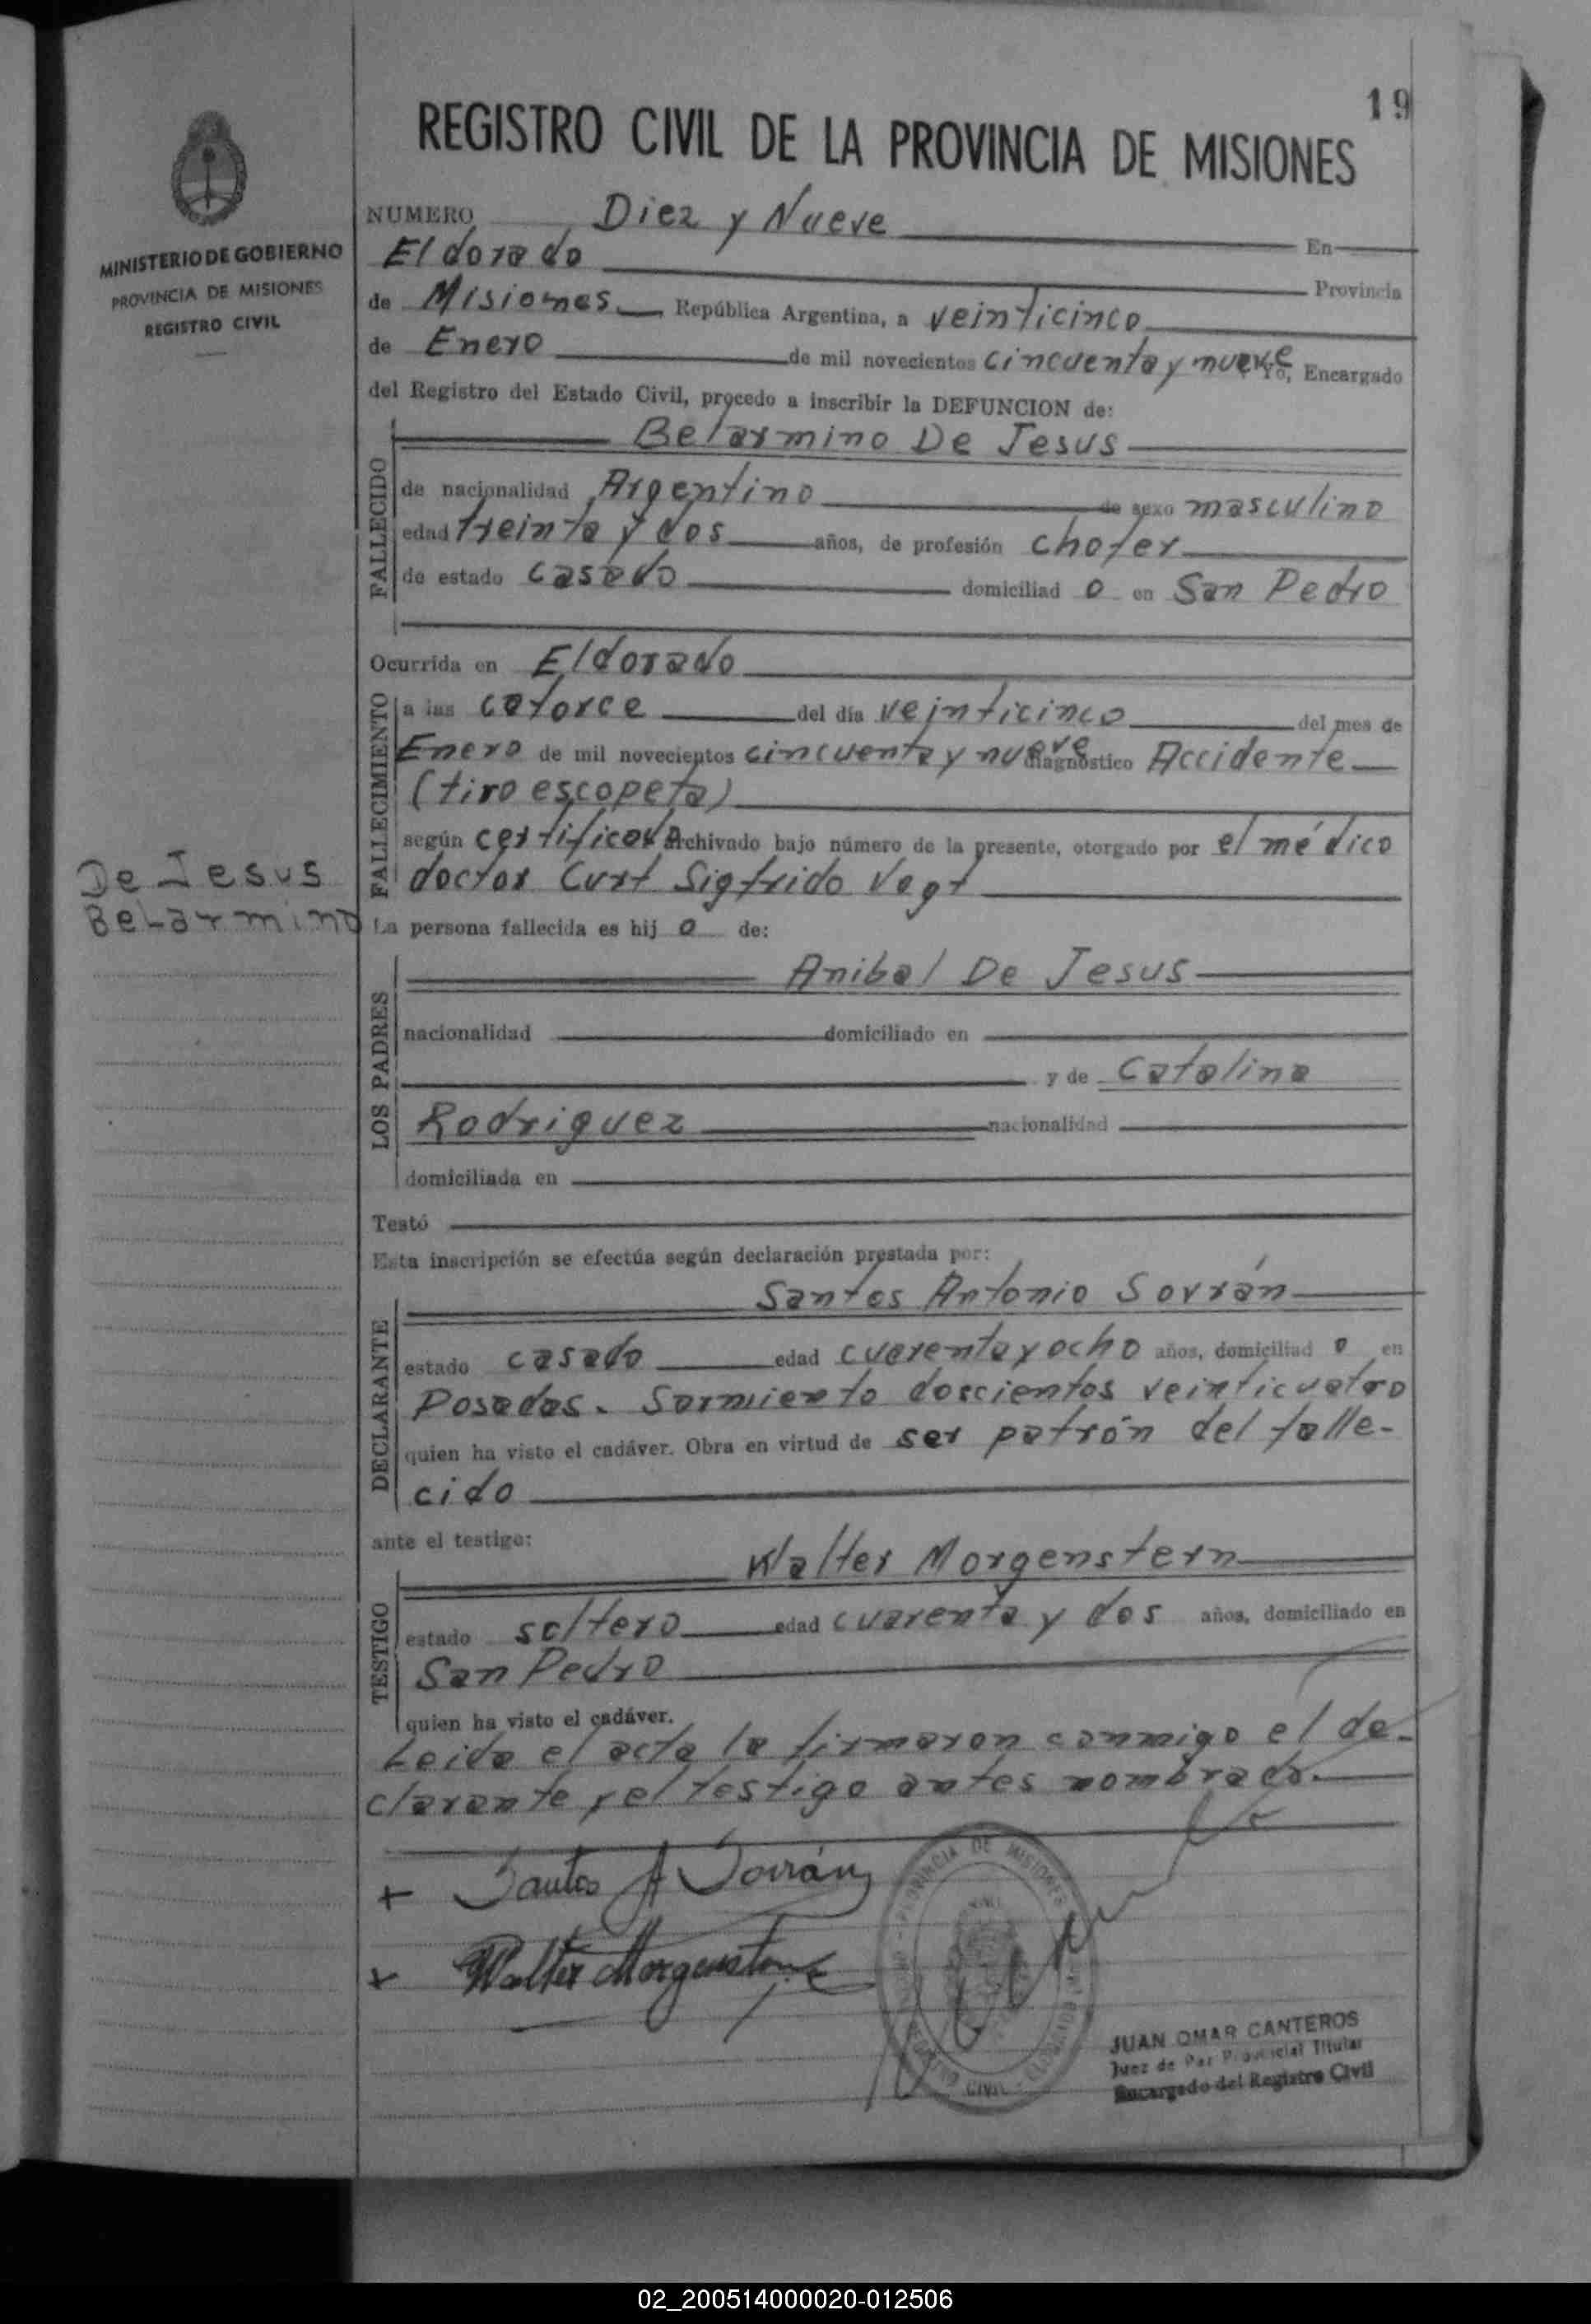 19
REGISTRO CIVIL DE LA PROVINCIA DE MISIONES
MINISTERIO DE GOBIERNO
PROVINCIA DE MISIONES
REGISTRO CIVIL
NUMERO Diez y Nueve En
Eldorado Provincia
de Misiones República Argentina, a veinticinco
de Enero de mil novecientos cincuenta y nueve Yo, Encargado
del Registro del Estado Civil, procedo a inscribir la DEFUNCION de:
Belarmino De Jesus
FALLECIDO
de nacionalidad Argentino de sexo masculino
edad treinta y dos años, de profesión chofer
de estado casado domiciliad o en San Pedro
Ocurrida en Eldorado
FALLECIMIENTO
a las catorce del día veinticinco del mes de
Enero de mil novecientos cincuenta y nueve diagnóstico Accidente
(tiro escopeta)
según certificado Archivado bajo número de la presente, otorgado por el médico
doctor Curt Sigfrido Vogt
De Jesus
Belarmino
La persona fallecida es hij o de:
LOS PADRES
Anibal De Jesus
nacionalidad domiciliado en
y de Catalina
Rodriguez nacionalidad
domiciliada en
Testó
Esta inscripción se efectúa según declaración prestada por:
DECLARANTE
Santos Antonio Sorrán
estado casado edad cuarenta y ocho años, domiciliad o en
Posadas. Sarmiento doscientos veinticuatro
quien ha visto el cadáver. Obra en virtud de ser patrón del falle-
cido
ante el testigo:
TESTIGO
Walter Morgenstern
estado soltero edad cuarenta y dos años, domiciliado en
San Pedro
quien ha visto el cadáver.
Leida el acta la firmaron conmigo el de-
clarante y el testigo antes nombrado.
+ Santos A Sorrán
+ Walter Morgenstern
PROVINCIA DE MISIONES
REGISTRO CIVIL
JUAN OMAR CANTEROS
Juez de Paz Provincial Titular
Encargado del Registro Civil
02_200514000020-012506